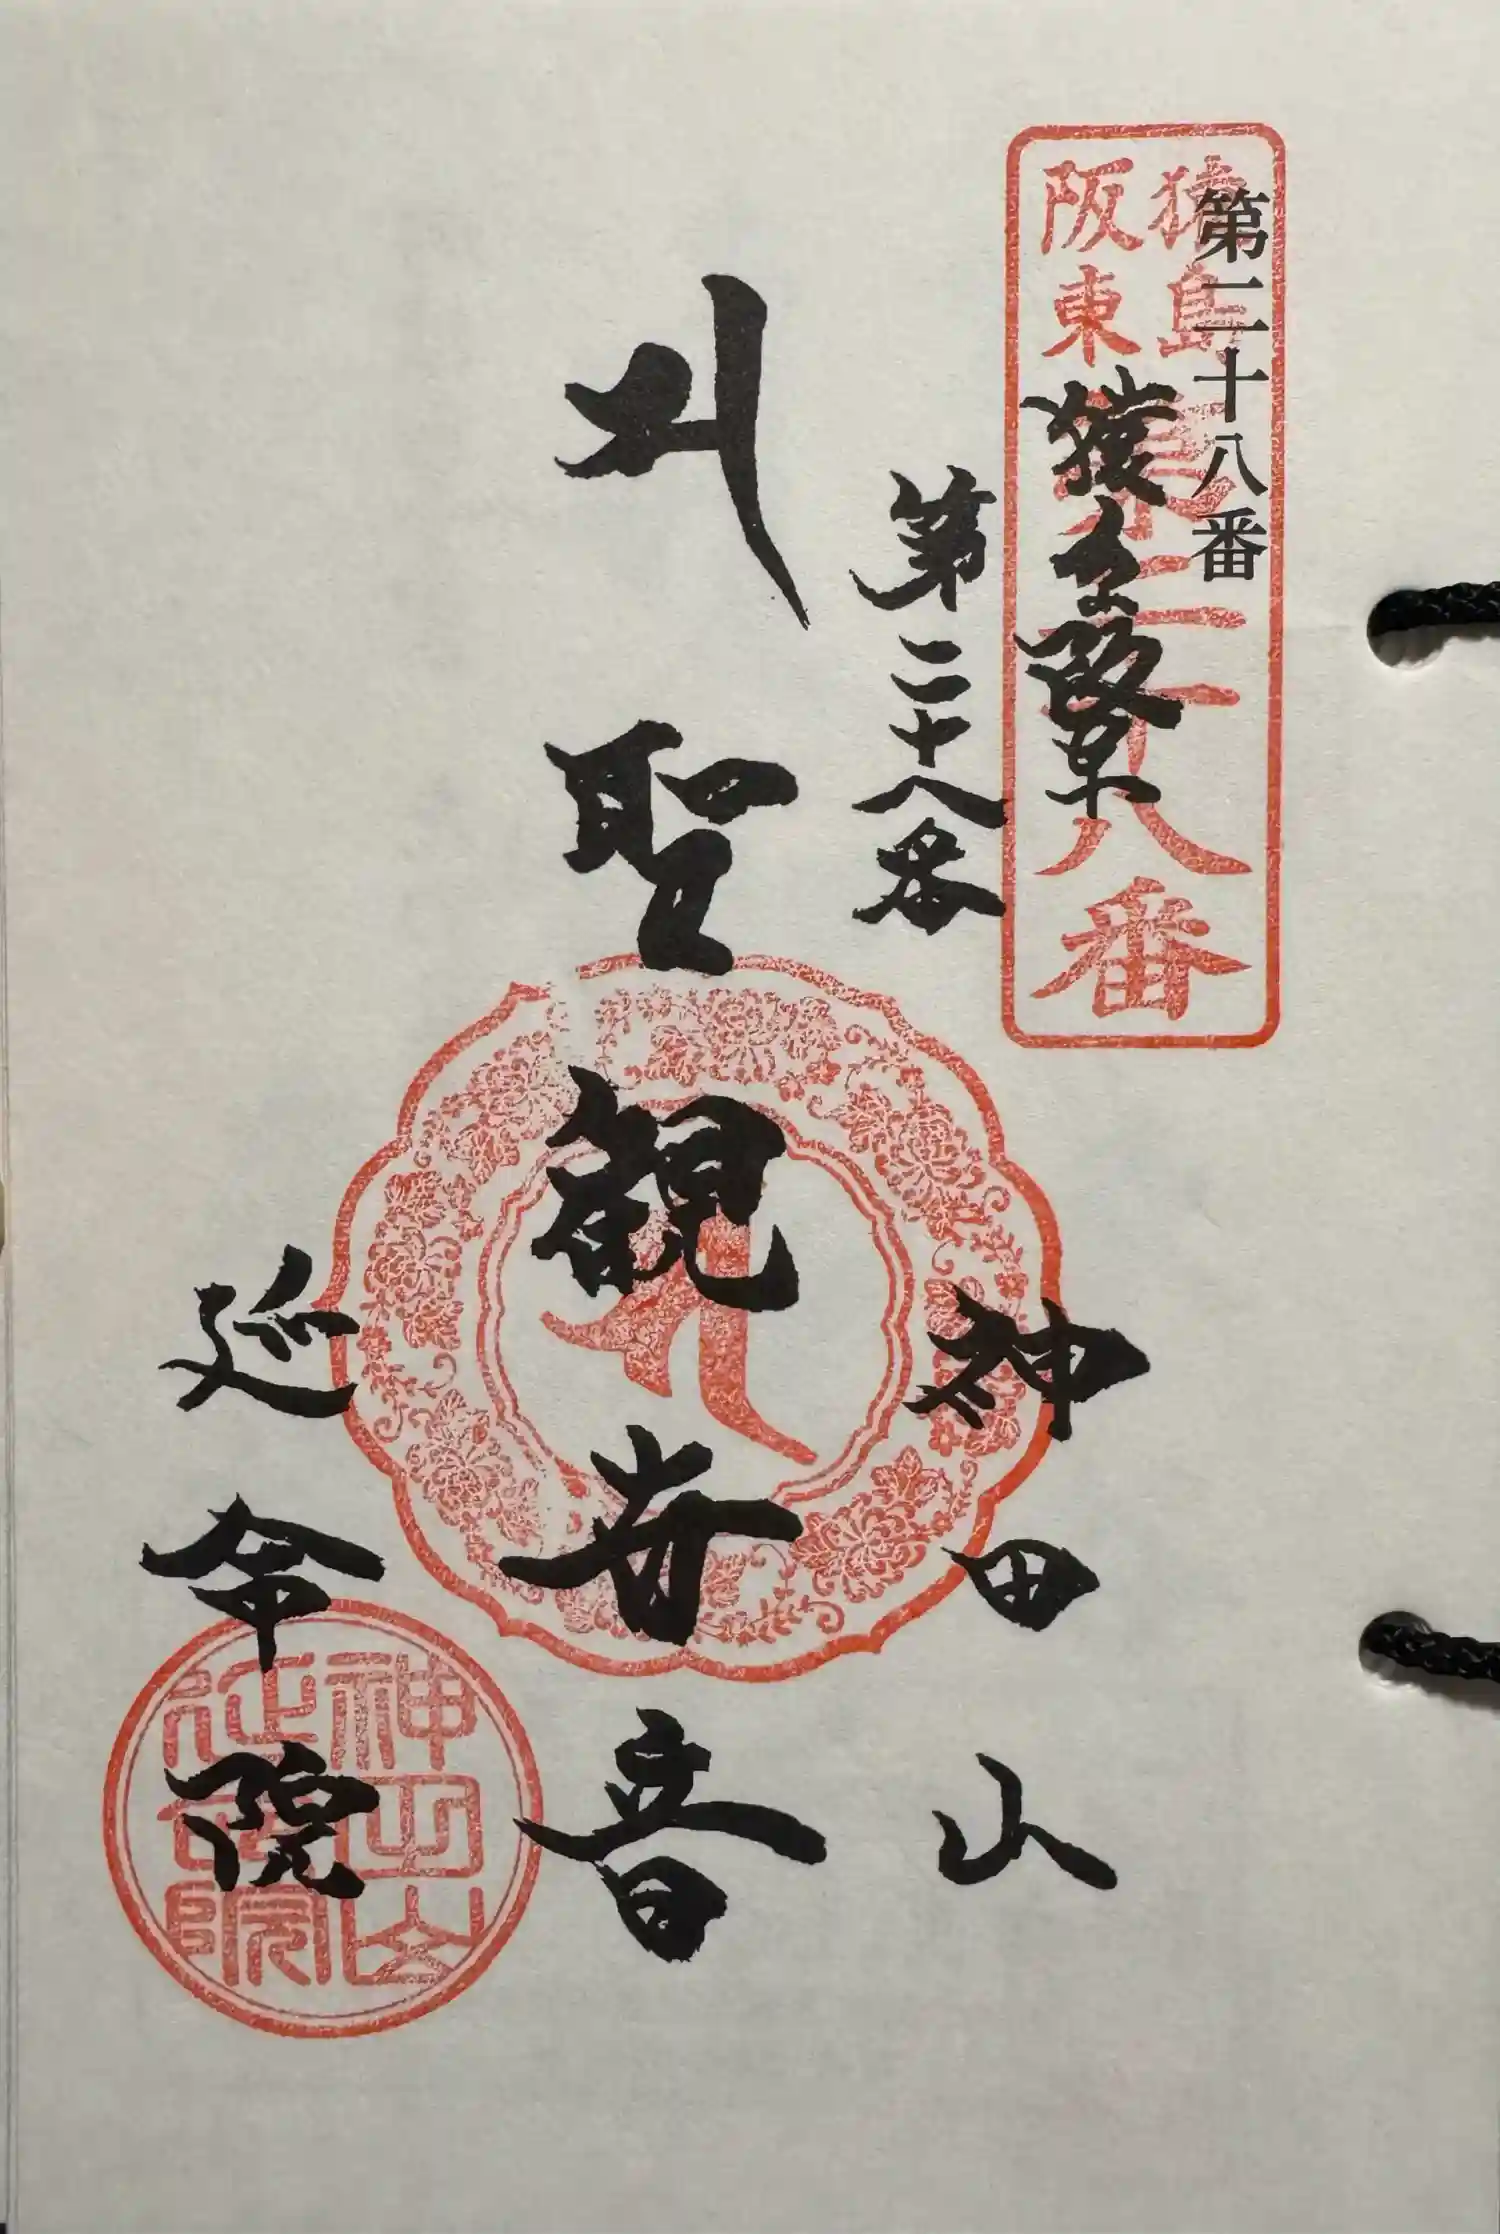 第二十八番
猿島
阪東
第二十八番
猿島阪東
第二十八番
神田山
聖観世音
延命院
神田山
延命院